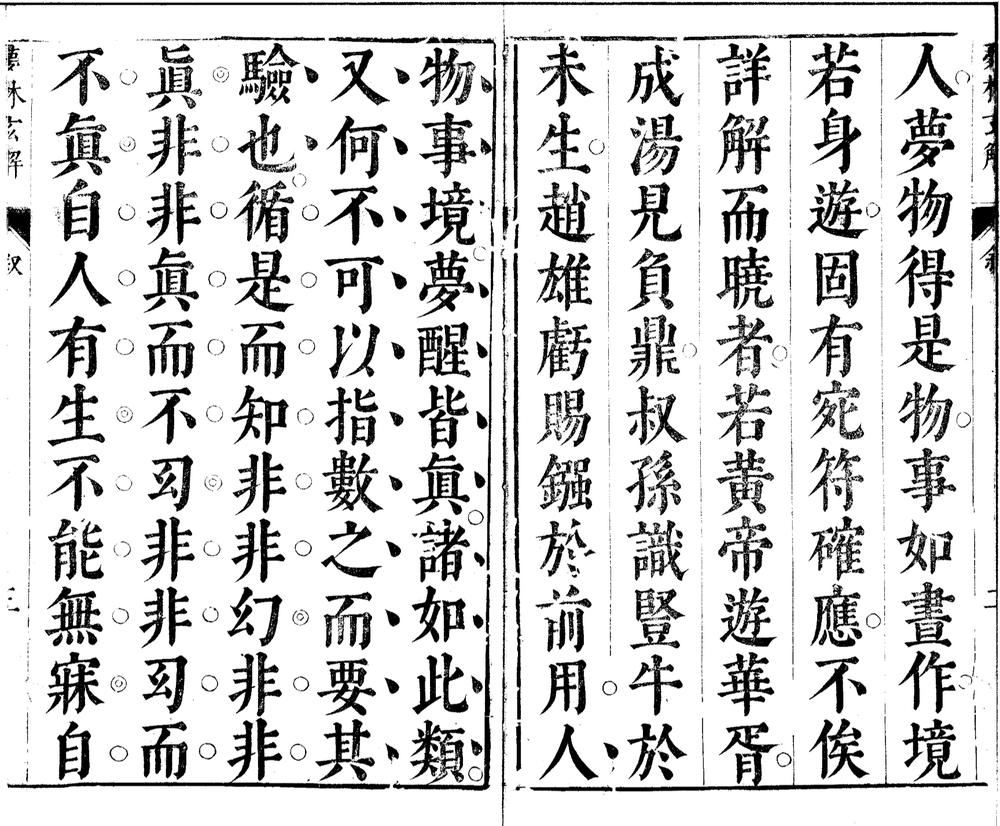 人夢物得是物事如晝作境
若身遊固有宛符確應不俟
詳解而曉者若黃帝遊華胥
成湯見負鼎叔孫識豎牛於
未生趙雄虧賜鏹於前用人
物事境夢醒皆眞諸如此類
又何不可以指數之而要其
驗也循是而知非非幻非非
眞非非眞而不㓜非非㓜而
不眞自人有生不能無寐自
夢林玄解
叙
三